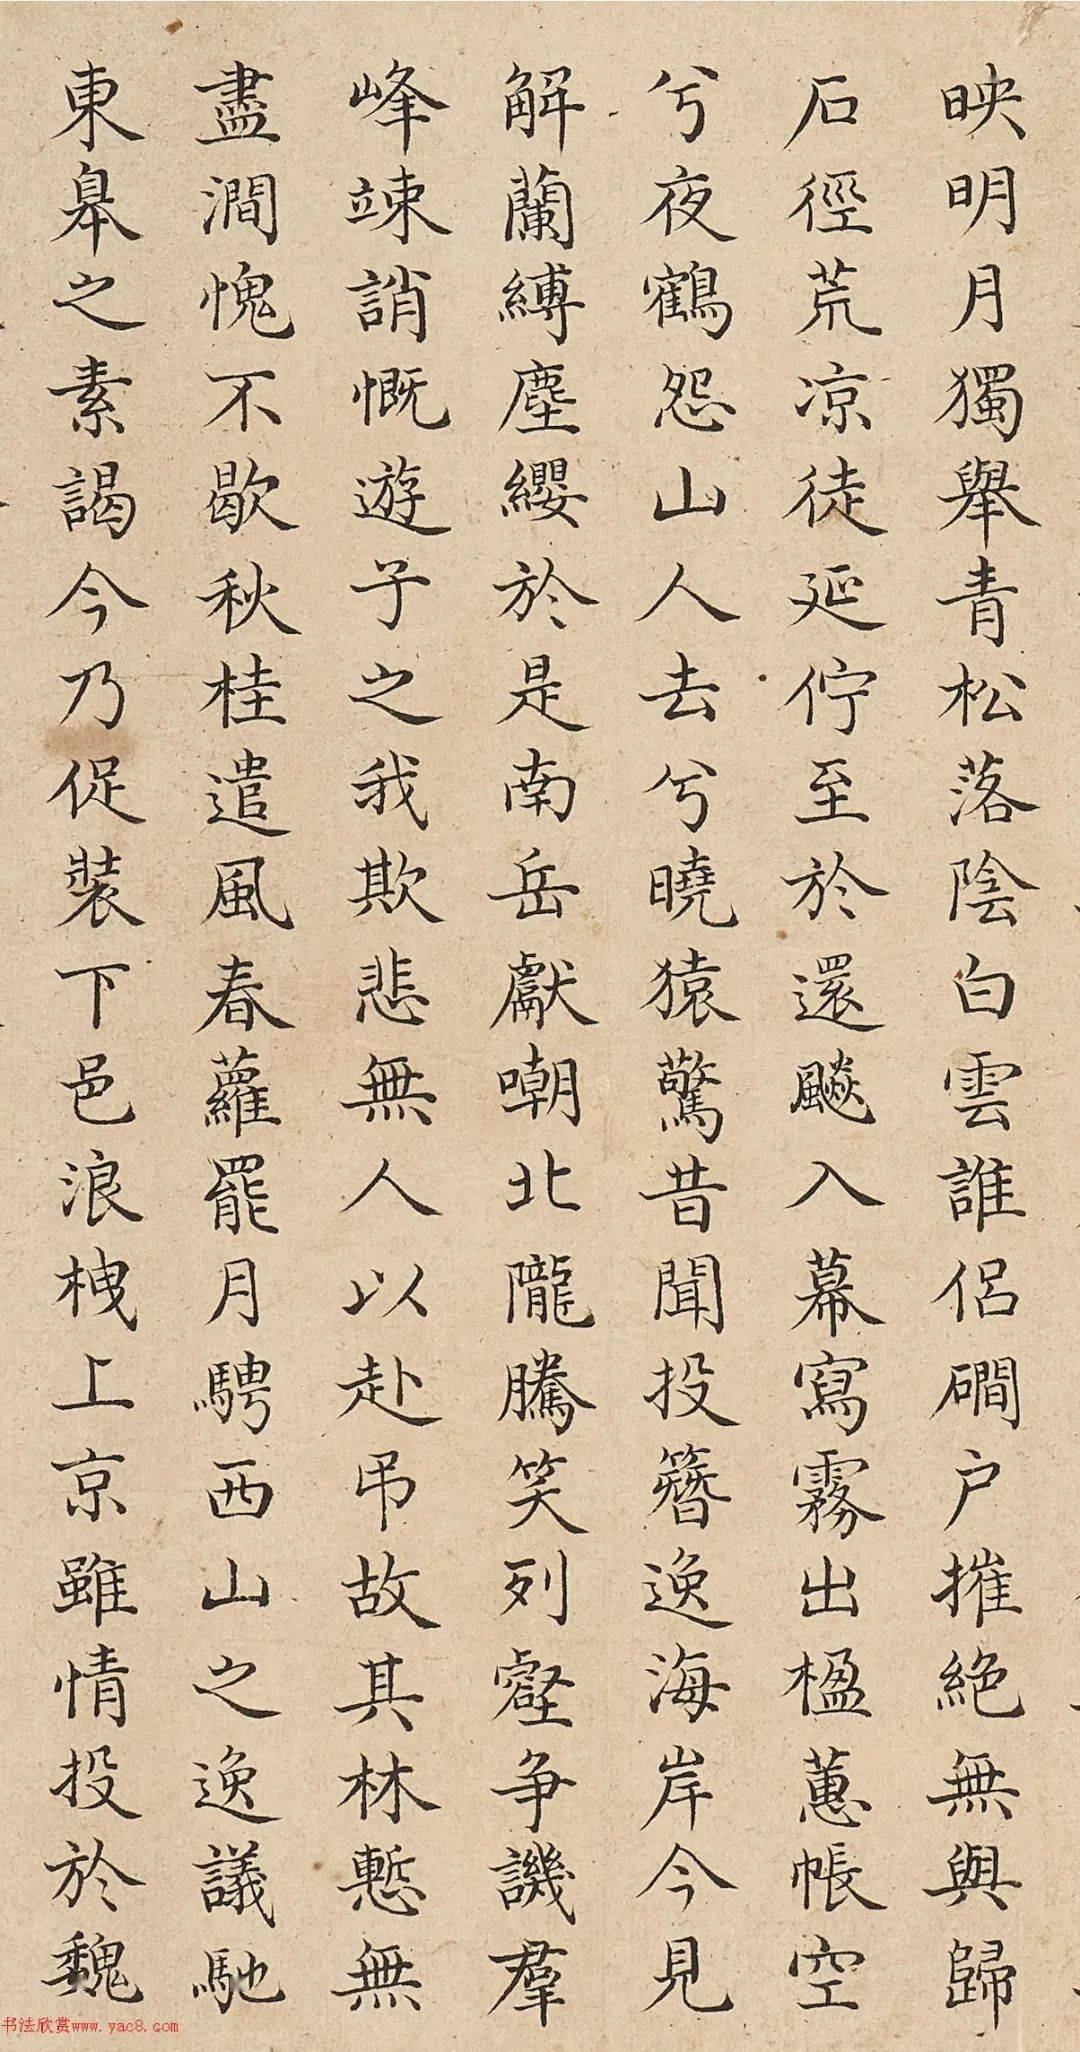 映明月獨舉青松落陰白雲誰侶磵户摧絶無與歸
石徑荒涼徒延佇至於還飈入幕寫霧出楹蕙帳空
兮夜鶴怨山人去兮曉猿驚昔聞投簪逸海岸今見
解蘭縛塵纓於是南岳獻嘲北隴騰笑列壑争譏羣
峰竦誚慨遊子之我欺悲無人以赴吊故其林慙無
盡澗愧不歇秋桂遣風春蘿罷月騁西山之逸議馳
東皋之素謁今乃促裝下邑浪栧上京雖情投於魏
书法欣赏www.yac8.com